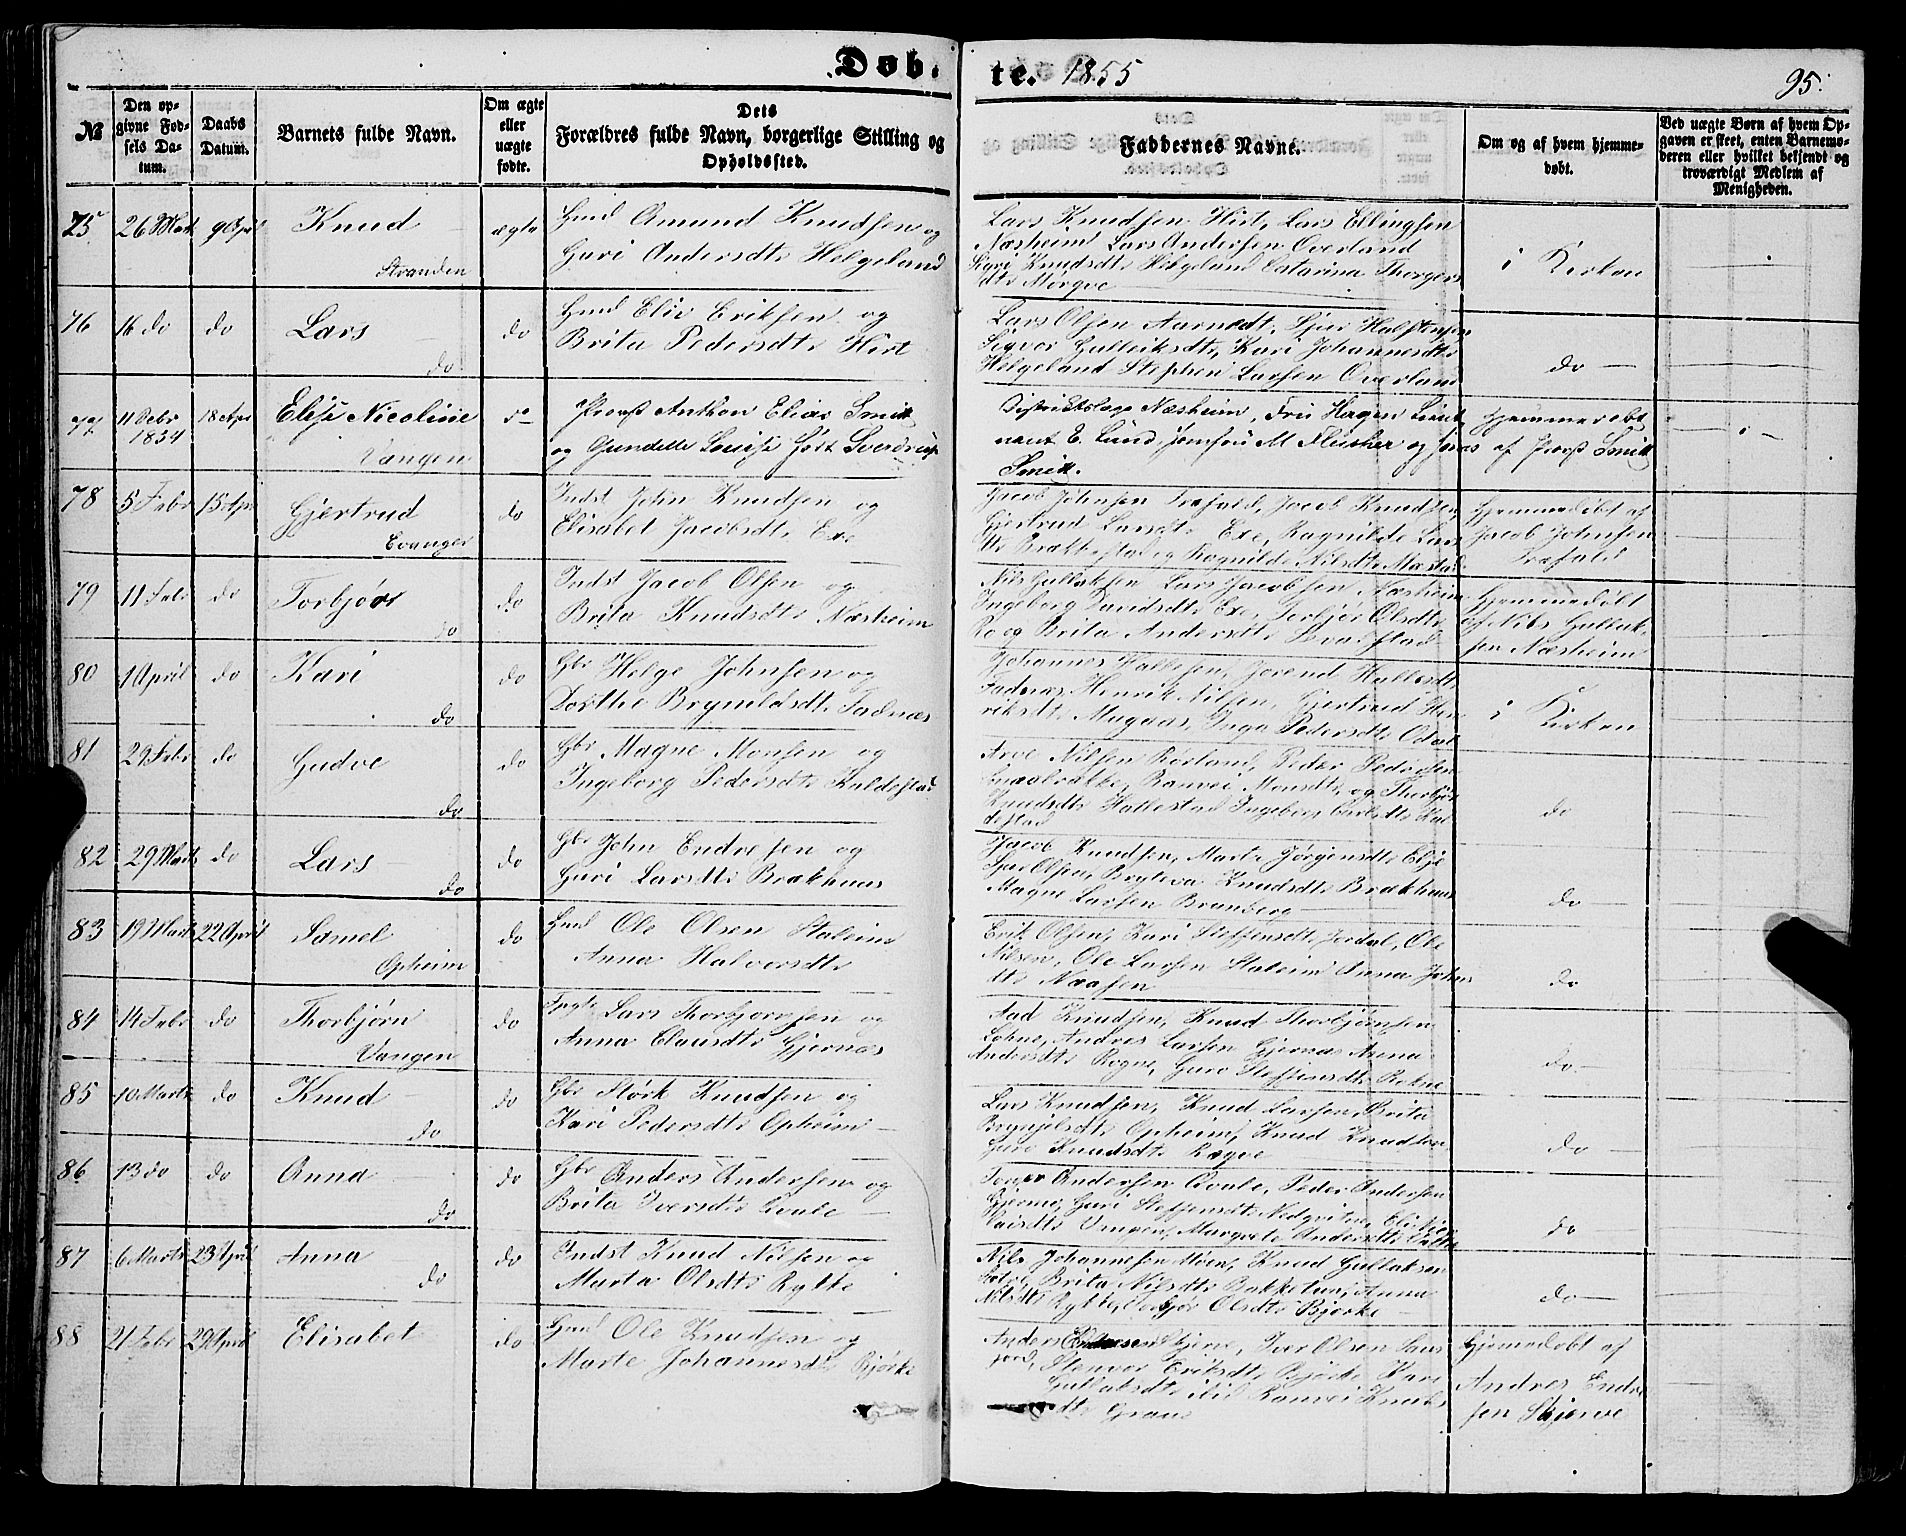 Døb. te. 1855
95.
№
Den opgivne Fødsels Datum.
Daabs Datum.
Barnets fulde Navn.
Om ægte eller uægte fødte.
Dets Forældres fulde Navn, borgerlige Stilling og Opholdssted.
Faddernes Navne.
Om og af hvem hjemmedøbt.
Ved uægte Børn af hvem Opgaven er skeet, enten Barnemoderen eller hvilket bekjendt og troværdigt Medlem af Menigheden.
75 26 Mart 9 Apr Knud Stranden ægte
Gmd Amund Knudsen og
Guri Andersdtr Helgeland
Lars Knudsen Hirt, Lars Ellingsen
Næsheim Lars Andersen Overland
Sigri Knudsdtr Helgeland Catarina Thorgers
dtr Mørqve
i Kirken
76 16 do do Lars do do
Gmd Elir Eriksen og
Brita Pedersdtr Hirt
Lars Olsen Aarnedt, Sjur Halstensen
Sigvor Gulleiksdtr, Kari Johannesdtr
Helgeland Stephen Larsen Overland
do
77 11 Debr 1854 18 Apr Elise Nicoline Vangen do
Provst Anthon Elias Smitt
og Gundelle Louise Hört Sverdrup
Distriktslæge Næsheim, Fru Hagen Lieut
nant E. Lund, Jomfru M Fleisher og
Smitt.
Hjemmedøbt
af Provst Smitt
78 5 Febr 15 Apr Gjertrud Evanger do
Indst John Knudsen og
Elisabet Jacobsdtr Exe
Jacob Johnsen Træfald, Jacob Knudsen
Gjertrud Larsdtr Exe, Ragnilde Lars
dtr Brækkestad og Ragnilde Nilsdtr Mæstad
Hjemmedøbt af
Jacob Johnsen
Træfald
79 11 Febr do Torbjør do do
Indst Jacob Olsen og
Brita Knudsdtr Næsheim
Nils Gullaksen Lars Jacobsen Næsheim
Ingeborg Davidsdtr Exe, Torbjør Olsdtr
Ro og Brita Andersdtr
Hjemmedøbt
af Nils Gullak
sen Næsheim
80 1 April do Kari do do
Gbr Helge Johnsen og
Dorthe Brynildsdtr Fadnæs
Johannes Hallesen, Jorend Hallesdtr
Fadnæs, Henrik Nilsen, Gjertrud Hen
riksdtr Mugaas, Inga Pedersdtr Odal
i Kirken
81 29 Febr do Gudve do do
Gbr Magne Monsen og
Ingeborg Pedersdtr Kaldestad
Arve Nilsen Rørland, Peder Pedersen
Snasbrække, Ranvei Monsdtr og Thorbjør
Knudsdtr Hallestad Ingeborg Carlsdtr Kal
destad
do
82 29 Mart do Lars do do
Gbr John Endresen og
Guri Larsdtr Brækhuus
Jacob Knudsen, Marta Jørgensdtr Elje
Sjur Olsen, Bryteva Knudsdtr Brækhuus
Magne Larsen Brunborg
do
83 19 Marts 22 April Samel Opheim do
Gmd Ole Olsen Staleim
Anna Halvorsdtr
Erik Olsen, Kari Steffensdtr Jordal, Ole
Nilsen, Ole Larsen Staleim Anna Johns
dtr Naasen
do
84 14 Febr do Thorbjørn Vangen do
Lars Thorbjørnsen og
Anna Clausdtr Gjernæs
Aad Knudsen, Knud Thorbjørnsen
Lohne, Andres Larsen Gjernæs Anna
Andersdtr Rogne, Guro Steffensdtr Rokne
do
85 10 Marts do Knud do do
Gbr Størk Knudsen og
Kari Pedersdtr Opheim
Lars Knudsen, Knud Larsen, Brita
Brynjelsdtr Opheim, Knud Knudsen
Guri Knudsdtr Ræqve
do
86 13 do do Anna do do
Gbr Anders Andersen og
Brita Iversdtr Qvale
Torger Andersen Qvale, Peder Andersen
Gjerme, Guri Steffensdtr Nedqvitne, Eli
dtr Vangen, Margrete Andersdtr
do
87 6 Marts 23 April Anna do do
Indst Knud Nilsen og
Marta Olsdtr Rykke
Nils Johannesen Møen, Knud Gullaksen
Brita Nilsdtr Bakketun, Anna
Nilsdtr Rykke, Torbjør Olsdtr Bjørke
do
88 21 Febr 29 April Elisabet do
Gmd Ole Knudsen og
Marte Johannesdtr Bjørke
Anders Endresen Skjerve, Iver Olsen Saue
jord, Stenvor Eriksdtr Bjørke Kari
Gullaksdtr ibid Ranvei Knuds
dtr Graue
Hjemmedøbt af
Andres Endre
sen Skjerve